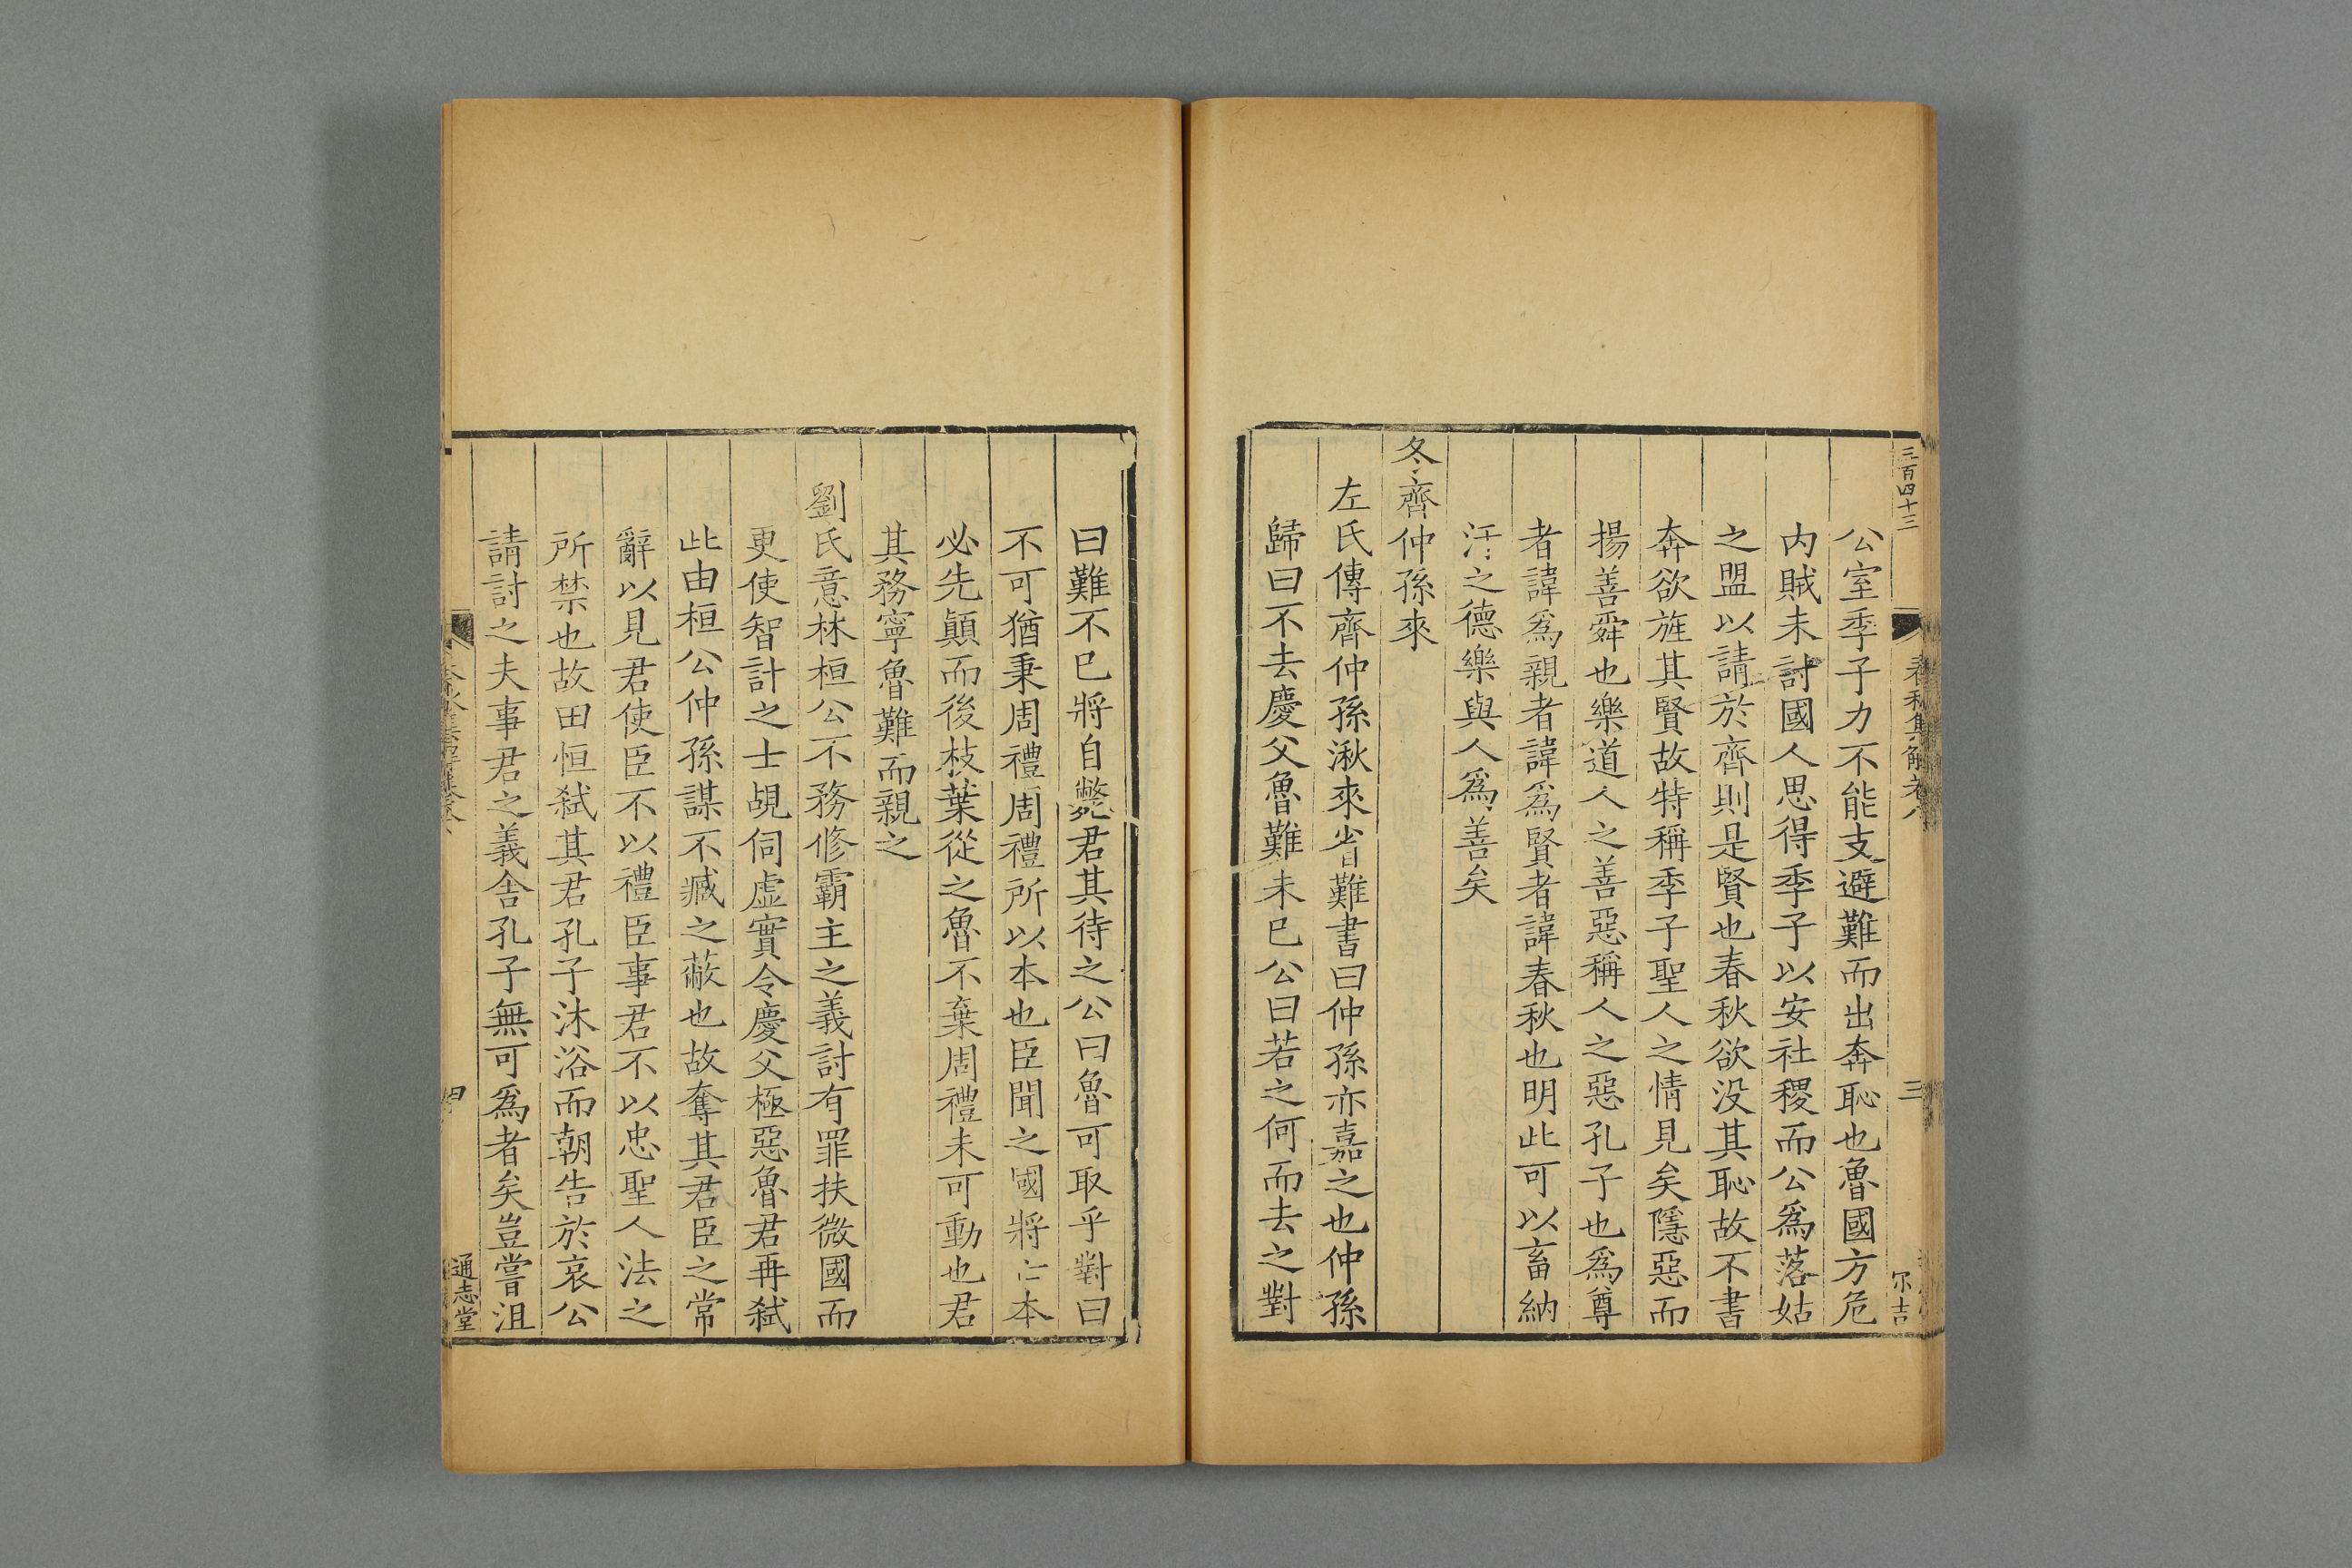 三百四十三
春秋集解卷八
三
公室季子力不能支避難而出奔恥也魯國方危
内賊未討國人思得季子以安社稷而公爲落姑
之盟以請於齊則是賢也春秋欲没其恥故不書
奔欲旌其賢故特稱季子聖人之情見矣隱惡而
揚善舜也樂道人之善惡稱人之惡孔子也爲尊
者諱爲親者諱爲賢者諱春秋也明此可以畜納
汙之德樂與人爲善矣
冬齊仲孫來
左氏傳齊仲孫湫來省難書曰仲孫亦嘉之也仲孫
歸曰不去慶父魯難未已公曰若之何而去之對
曰難不已將自斃君其待之公曰魯可取乎對曰
不可猶秉周禮周禮所以本也臣聞之國將亡本
必先顛而後枝葉從之魯不棄周禮未可動也君
其務寧魯難而親之
劉氏意林桓公不務修霸主之義討有罪扶微國而
更使智計之士覘伺虛實令慶父極惡魯君再弑
此由桓公仲孫謀不臧之蔽也故奪其君臣之常
辭以見君使臣不以禮臣事君不以忠聖人法之
所禁也故田恒弑其君孔子沐浴而朝告於哀公
請討之夫事君之義舍孔子無可爲者矣豈嘗沮
通志堂